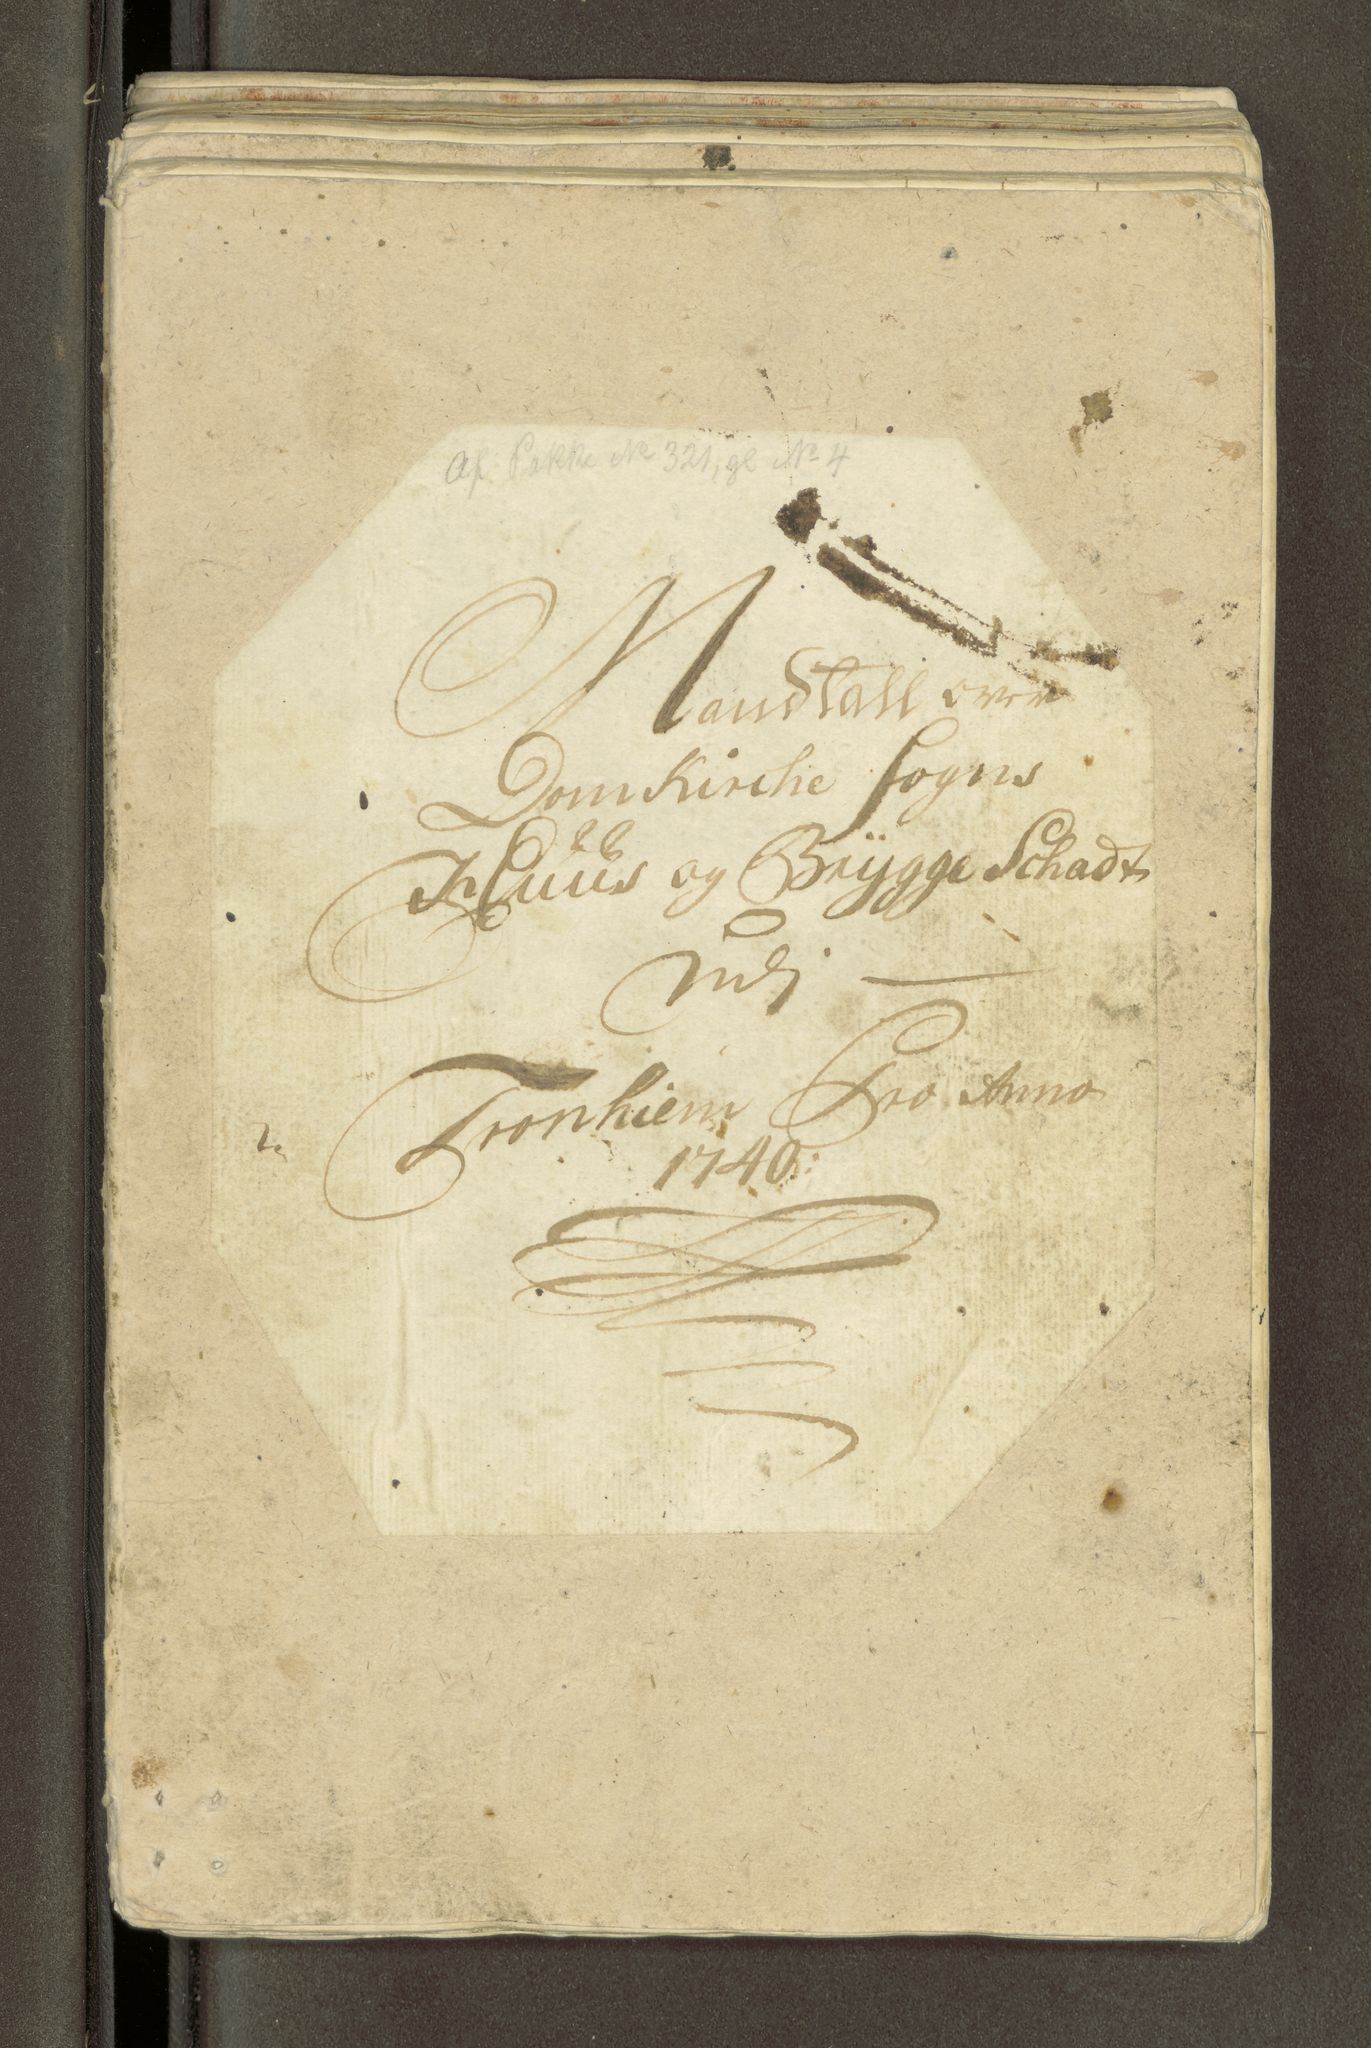 Af Pakke No 321, gl No 4
Mandtall over
Domkirche Sogns
Huus og Brÿgge Schadt
udj —
Tronhiem Pro Anno
1740: